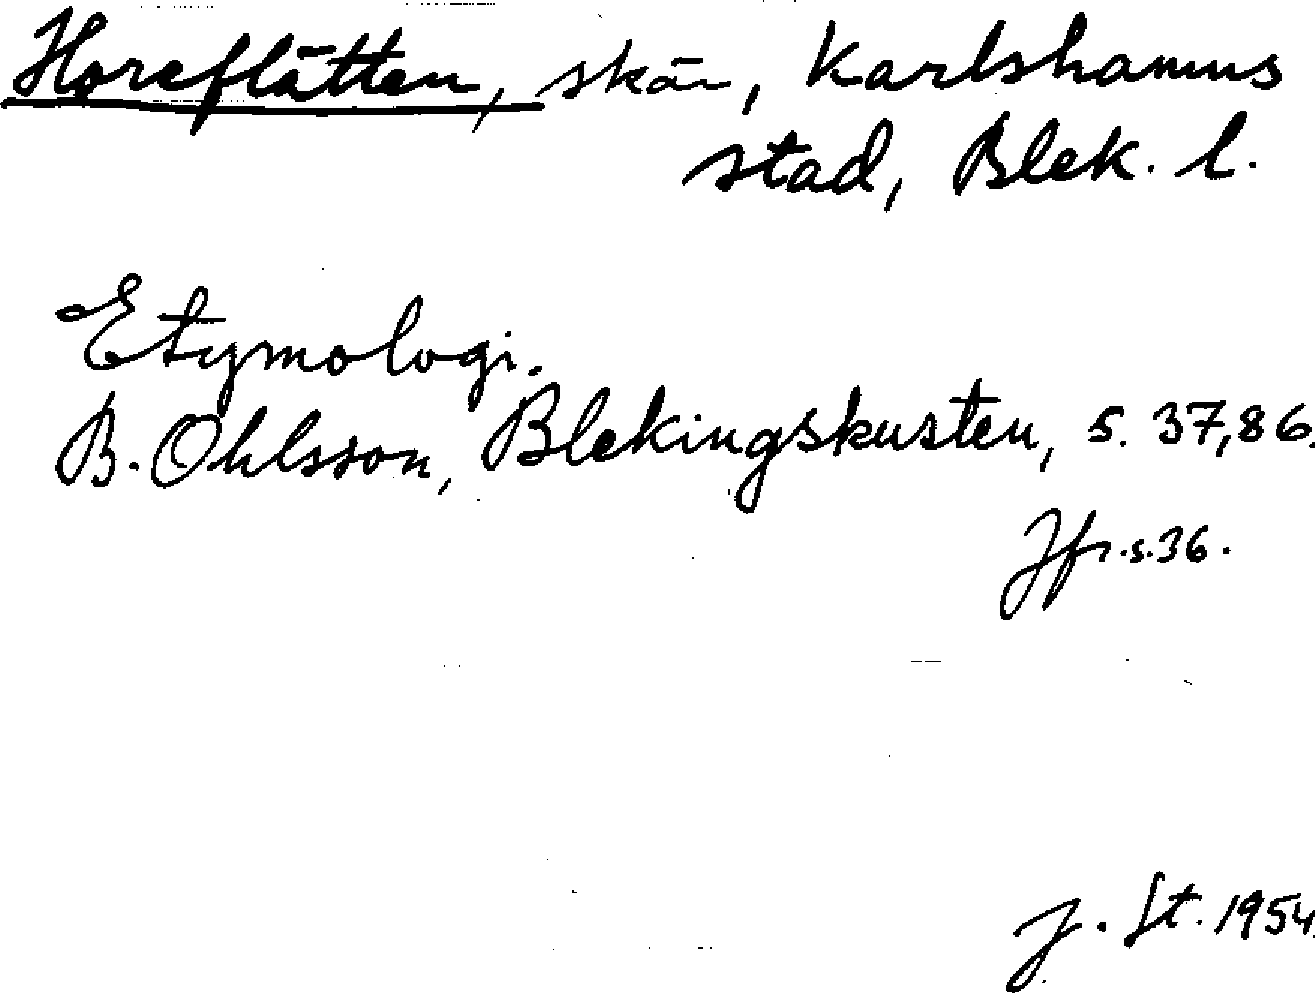 Horeflätten, skär, Karlshamns
stad, Blek. l.
Etymologi.
B. Ohlsson, Blekingskusten, s. 37, 86.
Jfr. s. 36.
J. St. 1954.